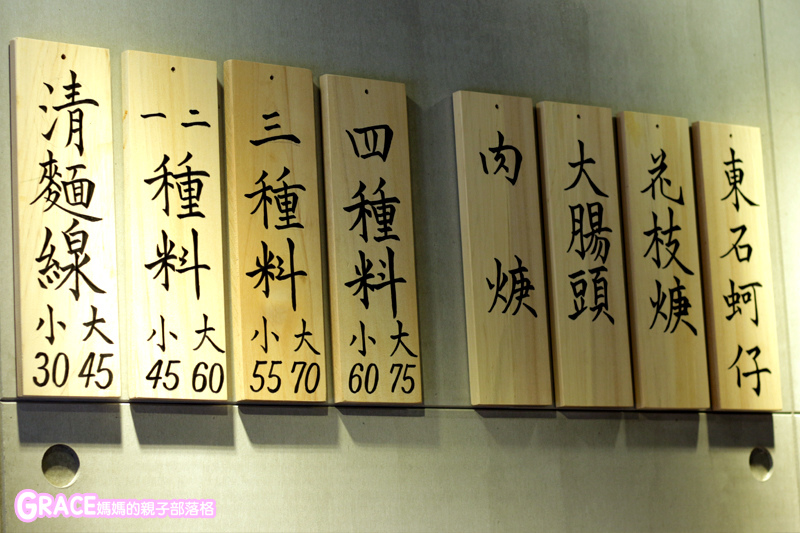 清麵線
小 大
30 45
一 二
種料
小 大
45 60
三種料
小 大
55 70
四種料
小 大
60 75
肉焿
大腸頭
花枝焿
東石蚵仔
GRACE媽媽的親子部落格